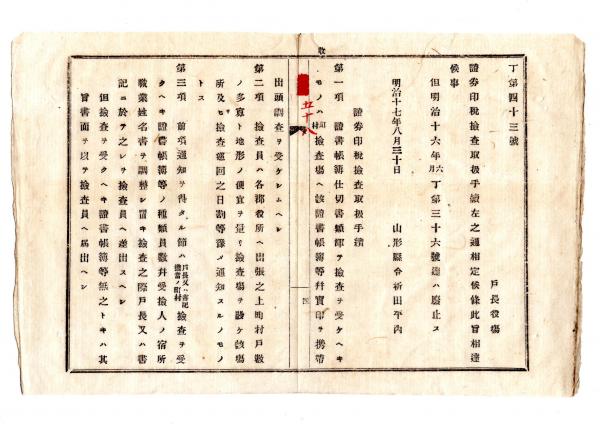 丁第四十三號
戶長役場
證券印稅檢査取扱手續左之通相定候條此旨相達
候事
但明治十六年六月丁第三十六號達ハ廢止ス
明治十七年八月三十日
山形縣令折田平內
五十八
四
證券印稅檢査取扱手續
第一項 證書帳簿仕切書類都テ檢査ヲ受クヘキ
モノハ町村檢査塲ヘ該證書帳簿等幷實印ヲ携帶
出頭調査ヲ受ケシムヘシ
第二項 檢査員ハ各郡役所ヘ出張之上町村戶數
ノ多寡ト地形ノ便宜ヲ量リ檢査塲ヲ設ケ該塲
所及ヒ檢査巡回之日割等豫メ通知スルノモノ
トス
第三項 前項通知ヲ得タル節ハ戶長又ハ書記擔當ノ町村檢査ヲ受
クヘキ證書帳簿等ノ種類員數幷受檢人ノ宿所
職業姓名書ヲ調整シ置キ檢査之際戶長又ハ書
記ニ於テ之レヲ檢査員ヘ差出スヘシ
但檢査ヲ受クヘキ證書帳簿等無之トキハ其
旨書面ヲ以テ檢査員ヘ屆出ヘシ